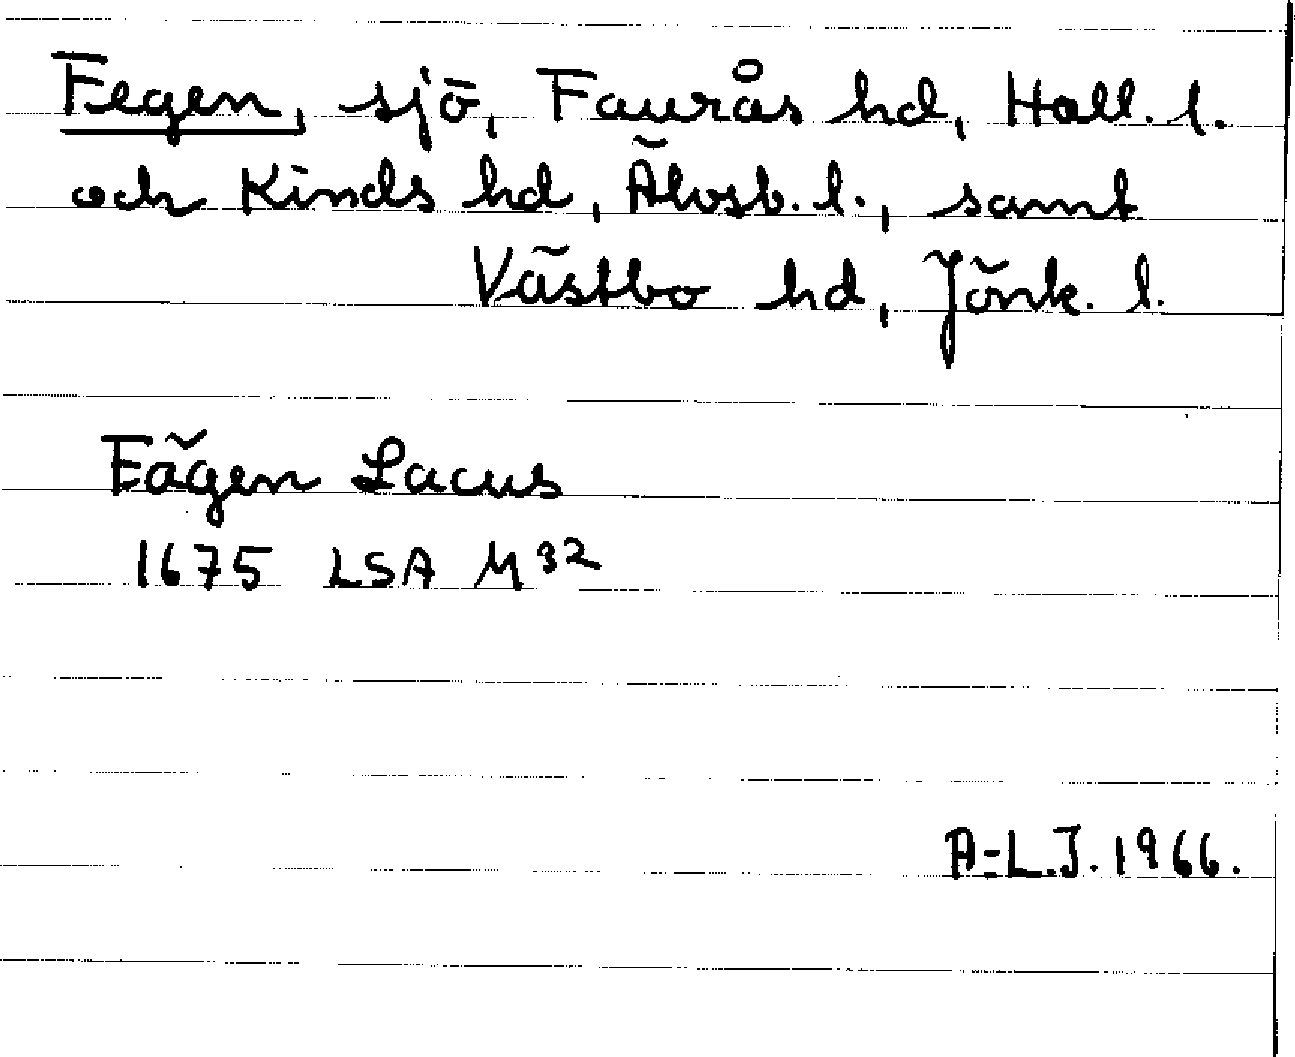 Fegen, sjö, Faurås hd, Hall. l.
och Kinds hd, Älvsb. l., samt
Västbo hd, Jönk. l.
Fägen Lacus
1675 LSA M 32
A-L.J. 1966.